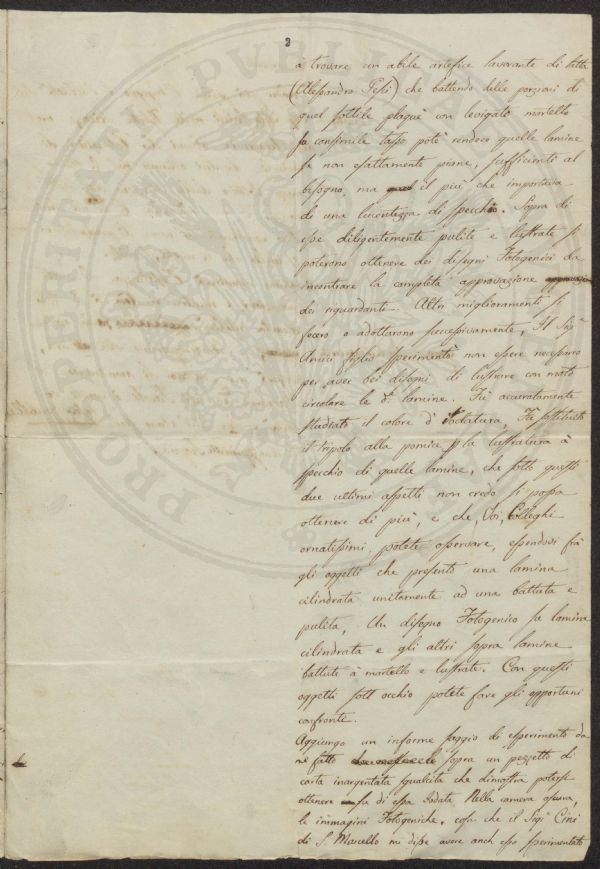 2
a trovare un abile artefice lavorante di latta
(Alessandro Pessi) che battendo delle porzioni di
quel sottile plaquè con levigato martello
su consimile tasso potè rendere quelle lamine
se non esattamente piane, sufficienti al
bisogno, ma il più che importava
di una lucentezza di specchio. Sopra di
esse diligentemente pulite e lustrate si
poterono ottenere dei disegni Fotogenici da
incontrare la completa approvazione
dei riguardanti. Altri miglioramenti si
fecero o adottarono successivamente, Il Sigr
Amici figlio sperimentò non essere necessario
per aver bei disegni di lustrare con moto
circolare le d. lamine. Fu accuratamente
studiato il colore d'Iodatura, Fu sostituito
il tripolo alla pomice p la lustratura à
specchio di quelle lamine, che sotto questi
due ultimi aspetti non credo si possa
ottenere di più, e che, Voi, Colleghi
ornatissimi potete osservare, essendovi frà
gli oggetti che presento una lamina
cilindrata unitamente ad una battuta e
pulita, Un disegno Fotogenico su lamina
cilindrata e gli altri sopra lamine
battute à martello e lustrate. Con questi
oggetti sott occhio potete fare gli opportuni
confronti.
Aggiungo un informe saggio di esperimento da
me fatto sopra un pezzetto di
carta inargentata sgualcita che dimostra potersi
ottenere su di essa Iodata Nella camera oscura,
le immagini Fotogeniche, cosa che il Sigr Cini
di S. Marcello mi disse avere anch esso sperimentato
PROSPERITATI PUBLICAE